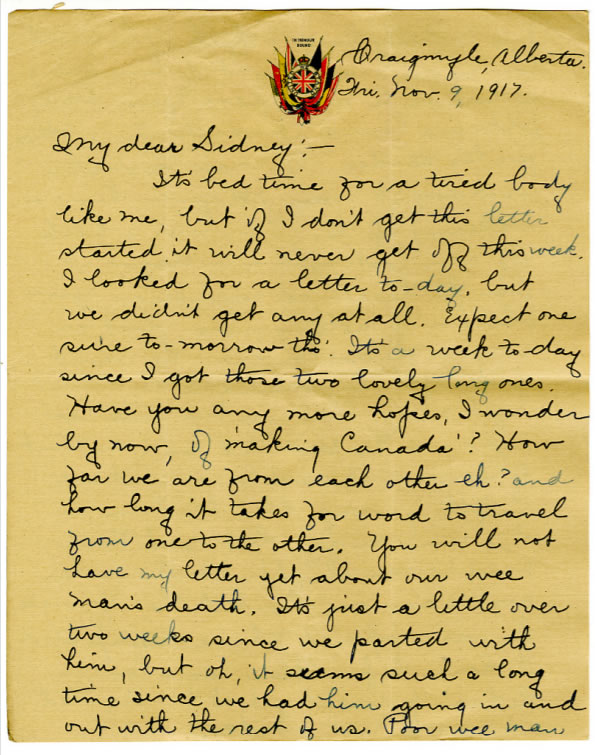 IN HONOUR
BOUND
Craigmyle, Alberta.
Fri. Nov. 9, 1917.
My dear Sidney:—
It's bed time for a tired body
like me, but if I don't get this letter
started it will never get off this week.
I looked for a letter to-day, but
we didn't get any at all. Expect one
sure to-morrow tho'. It's a week to-day
since I got those two lovely long ones.
Have you any more hopes, I wonder
by now, of 'making Canada'? How
far we are from each other eh? and
how long it takes for word to travel
from one to the other. You will not
have my letter yet about our wee
man's death. It's just a little over
two weeks since we parted with
him, but oh, it seems such a long
time since we had him going in and
out with the rest of us. Poor wee man